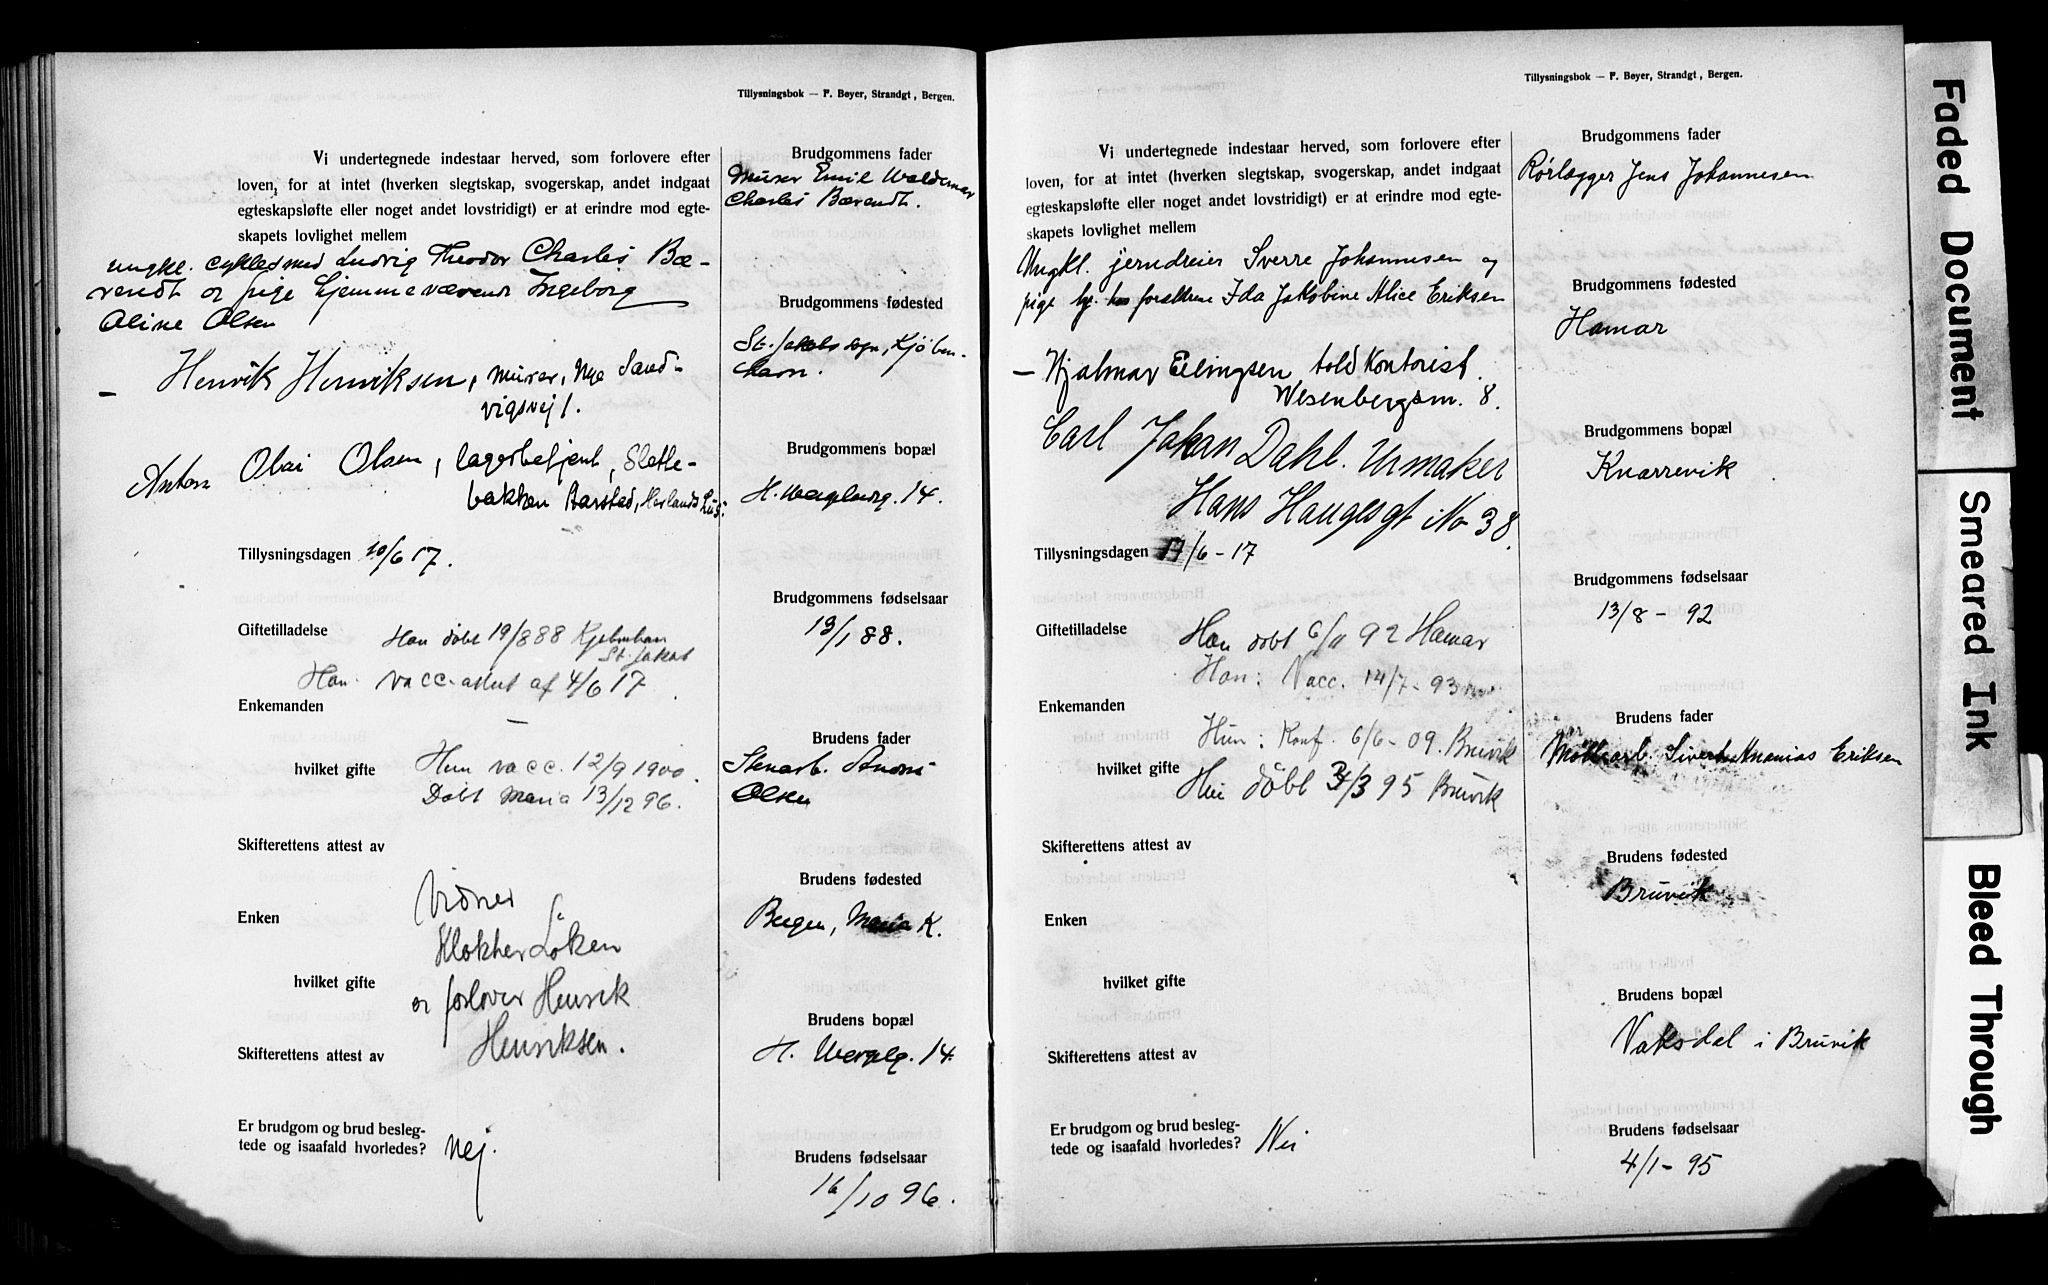 Tillysningsbok — F. Bøyer, Strandgt, Bergen.
Vi undertegnede indestaar herved, som forlovere efter
loven, for at intet (hverken slegtskap, svogerskap, andet indgaat
egteskapsløfte eller noget andet lovstridigt) er at erindre mod egte-
skapets lovlighet mellem
ungkl. cyklesmed Ludvig Theodor Charles Bæ-
rendt og pige hjemmeværende Ingeborg
Oline Olsen
– Henrik Henriksen, murer, Nye Sand-
vigsvej 1.
Anton Olai Olsen, lagerbetjent, Slette-
bakken Barstad,
Tillysningsdagen 10/6 17.
Giftetilladelse Han døbt 19/8 88 Kjøbenhavn
St. Jakob
Han vacc. attest af 4/6 17
Enkemanden –
hvilket gifte Hun vacc. 12/9 1900.
Døbt Maria 13/12 96.
Skifterettens attest av
Vidner
Enken
Klokker Løken
hvilket gifte og forlover Henrik
Henriksen.
Skifterettens attest av
Er brudgom og brud besleg-
tede og isaafald hvorledes? Nej.
Brudgommens fader
Murer Emil Waldemar
Charles Bærendt.
Brudgommens fødested
St. Jakobs sogn, Kjøben-
havn.
Brudgommens bopæl
H. Wergelandsg. 14.
Brudgommens fødselsaar
13/1 88.
Brudens fader
Stenarb. Andrs
Olsen
Brudens fødested
Bergen, Maria K.
Brudens bopæl
H. Wergelg. 14
Brudens fødselsaar
16/10 96.
Tillysningsbok — F. Bøyer, Strandgt, Bergen.
Vi undertegnede indestaar herved, som forlovere efter
loven, for at intet (hverken slegtskap, svogerskap, andet indgaat
egteskapsløfte eller noget andet lovstridigt) er at erindre mod egte-
skapets lovlighet mellem
Ungkl. jerndreier Sverre Johannesen og
pige hj. hos forældrene Ida Jakobine Alice Eriksen
– Hjalmar Ellingsen toldkontorist.
Wesenbergsm. 8.
Carl Johan Dahl. Urmaker
Hans Haugesgt No 38.
Tillysningsdagen 17/6 – 17
Giftetilladelse Han døbt 6/11 92 Hamar
Han: Vacc. 14/7 – 93
Enkemanden
Hun: Konf. 6/6 – 09. Bruvik
hvilket gifte
Hun døbt 3/3 95 Bruvik
Skifterettens attest av
Enken
hvilket gifte
Skifterettens attest av
Er brudgom og brud besleg-
tede og isaafald hvorledes? Nei
Brudgommens fader
Rørlægger Jens Johannesen
Brudgommens fødested
Hamar
Brudgommens bopæl
Knarrevik
Brudgommens fødselsaar
13/8 – 92
Brudens fader
Møllearb. Sivert Ananias Eriksen
Brudens fødested
Bruvik
Brudens bopæl
Vaksdal i Bruvik
Brudens fødselsaar
4/1 – 95
Faded Document
Smeared Ink
Bleed Through